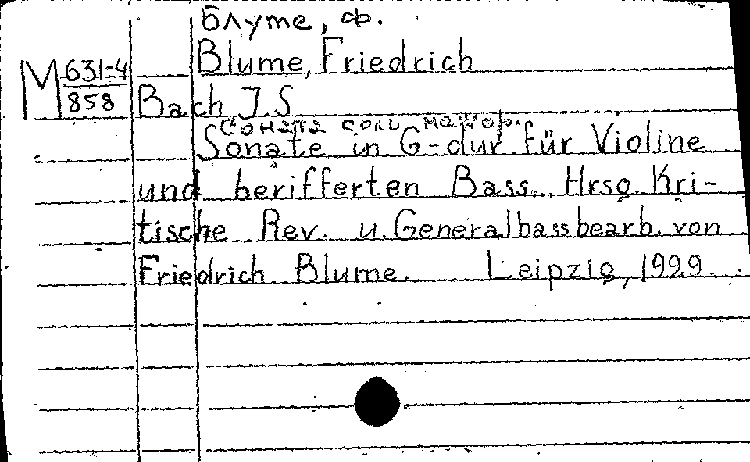 Блуме, Ф.
Blume, Friedrich
M 631-4
858
Bach J. S
Соната соль мажор.
Sonate in G-dur für Violine
und berifferten Bass. Hrsg. Kri-
tische Rev. u. Generalbassbearb. von
Friedrich Blume. Leipzig, 1929.